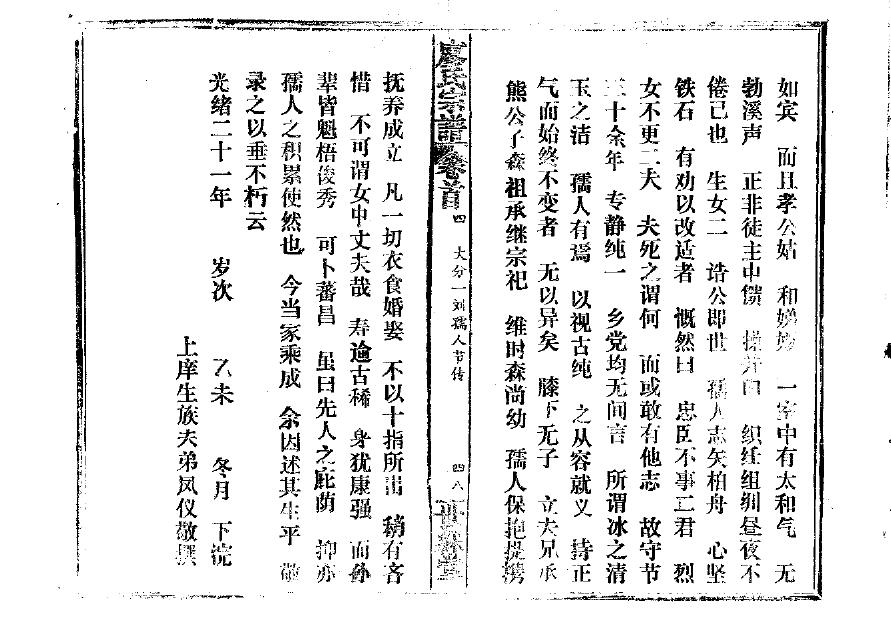 如宾 而且孝公姑 和娣姒 一室中有太和气 无
勃溪声 正非徒主中馈 操井臼 织纴组紃昼夜不
倦已也 生女二 诰公即世 孺人志矢柏舟 心坚
铁石 有劝以改适者 慨然曰 忠臣不事二君 烈
女不更二夫 夫死之谓何 而或敢有他志 故守节
三十余年 专静纯一 乡党均无间言 所谓冰之清
玉之洁 孺人有焉 以视古纯 之从容就义 持正
气而始终不变者 无以异矣 膝下无子 立夫兄承
熊公子森祖承继宗祀 维时森尚幼 孺人保抱提携
廖氏宗谱 卷首 四 大分一刘孺人节传 四八
抚养成立 凡一切衣食婚娶 不以十指所出 稍有吝
惜 不可谓女中丈夫哉 寿逾古稀 身犹康强 而孙
辈皆魁梧俊秀 可卜蕃昌 虽曰先人之庇荫 抑亦
孺人之积累使然也 今当家乘成 余因述其生平 敬
录之以垂不朽云
光绪二十一年 岁次 乙未 冬月 下浣
上庠生族夫弟凤仪敬撰